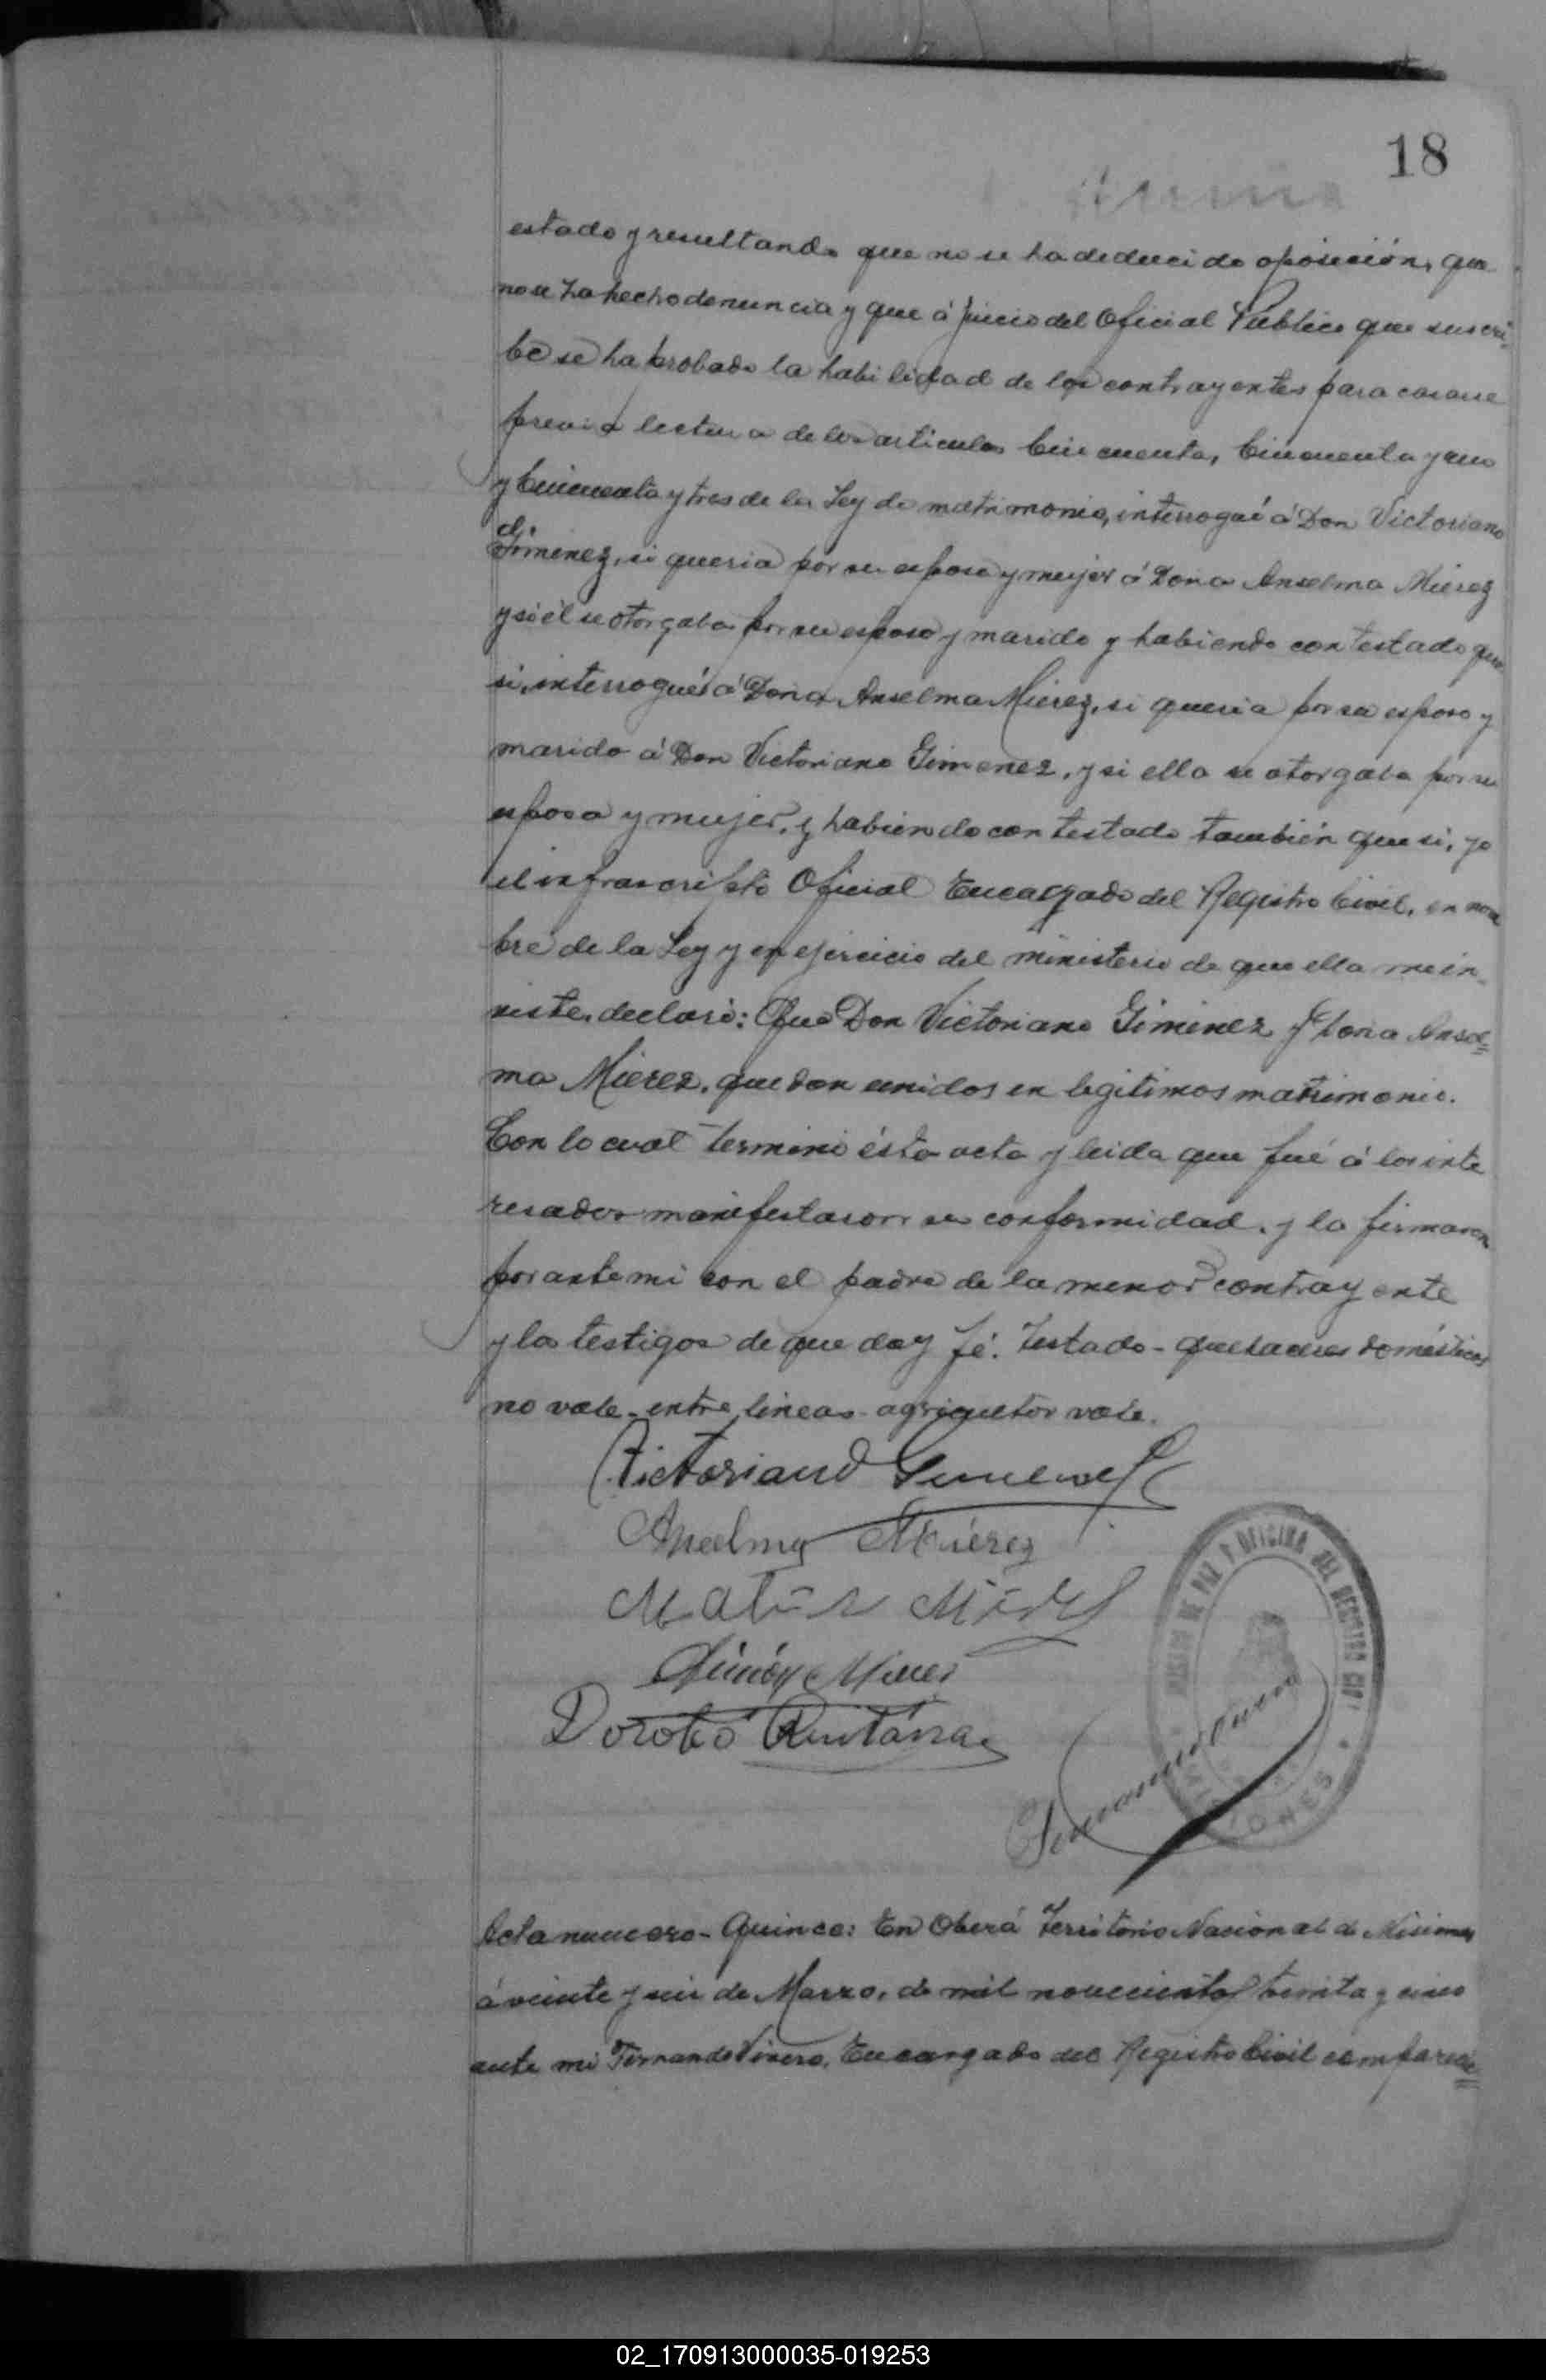 18
estado y resultando que no se ha deducido oposición, que
no se ha hecho denuncia y que á juicio del Oficial Público que suscri-
be se ha probado la habilidad de los contrayentes para casarse
previa lectura de los articulos Cincuenta, Cincuenta y uno
y Cincuenta y tres de la Ley de matrimonio, interrogué á Don Victoriano
Gimenez, si queria por su esposa y mujer á Dona Anselma Mierez
y si él se otorgaba por su esposo y marido y habiendo contestado que
si, interrogué á Dona Anselma Mierez, si queria por su esposo y
marido á Don Victoriano Gimenez, y si ella se otorgaba por su
esposa y mujer, y habiendo contestado también que si, yo
el infrascripto Oficial Encargado del Registro Civil, en nom
bre de la Ley y en ejercicio del ministerio de que ella me in-
viste, declaré: Que Don Victoriano Giminez y Dona Ansel=
ma Mierez, quedan unidos en legitimos matrimonio.
Con lo cual terminó ésta acta y leida que fué á los inte
resados manifestaron su conformidad, y la firmaron
por ante mi con el padre de la menor contrayente
y los testigos de que doy fé. Testado - quehaceres domésticos
no vale - entre lineas - agricultor vale.
Victoriano Gimenez
Anselma Miérez
Simón Mierez
Doroteo Quintana
JUZGADO DE PAZ Y OFICINA DEL REGISTRO CIVIL
MISIONES
Acta numero - Quince: En Oberá Territorio Nacional de Misiones
á veinte y seis de Marzo, de mil novecientos treinta y cinco
ante mi Fernando Vivero, Encargado del Registro Civil comparecie=
02_170913000035-019253